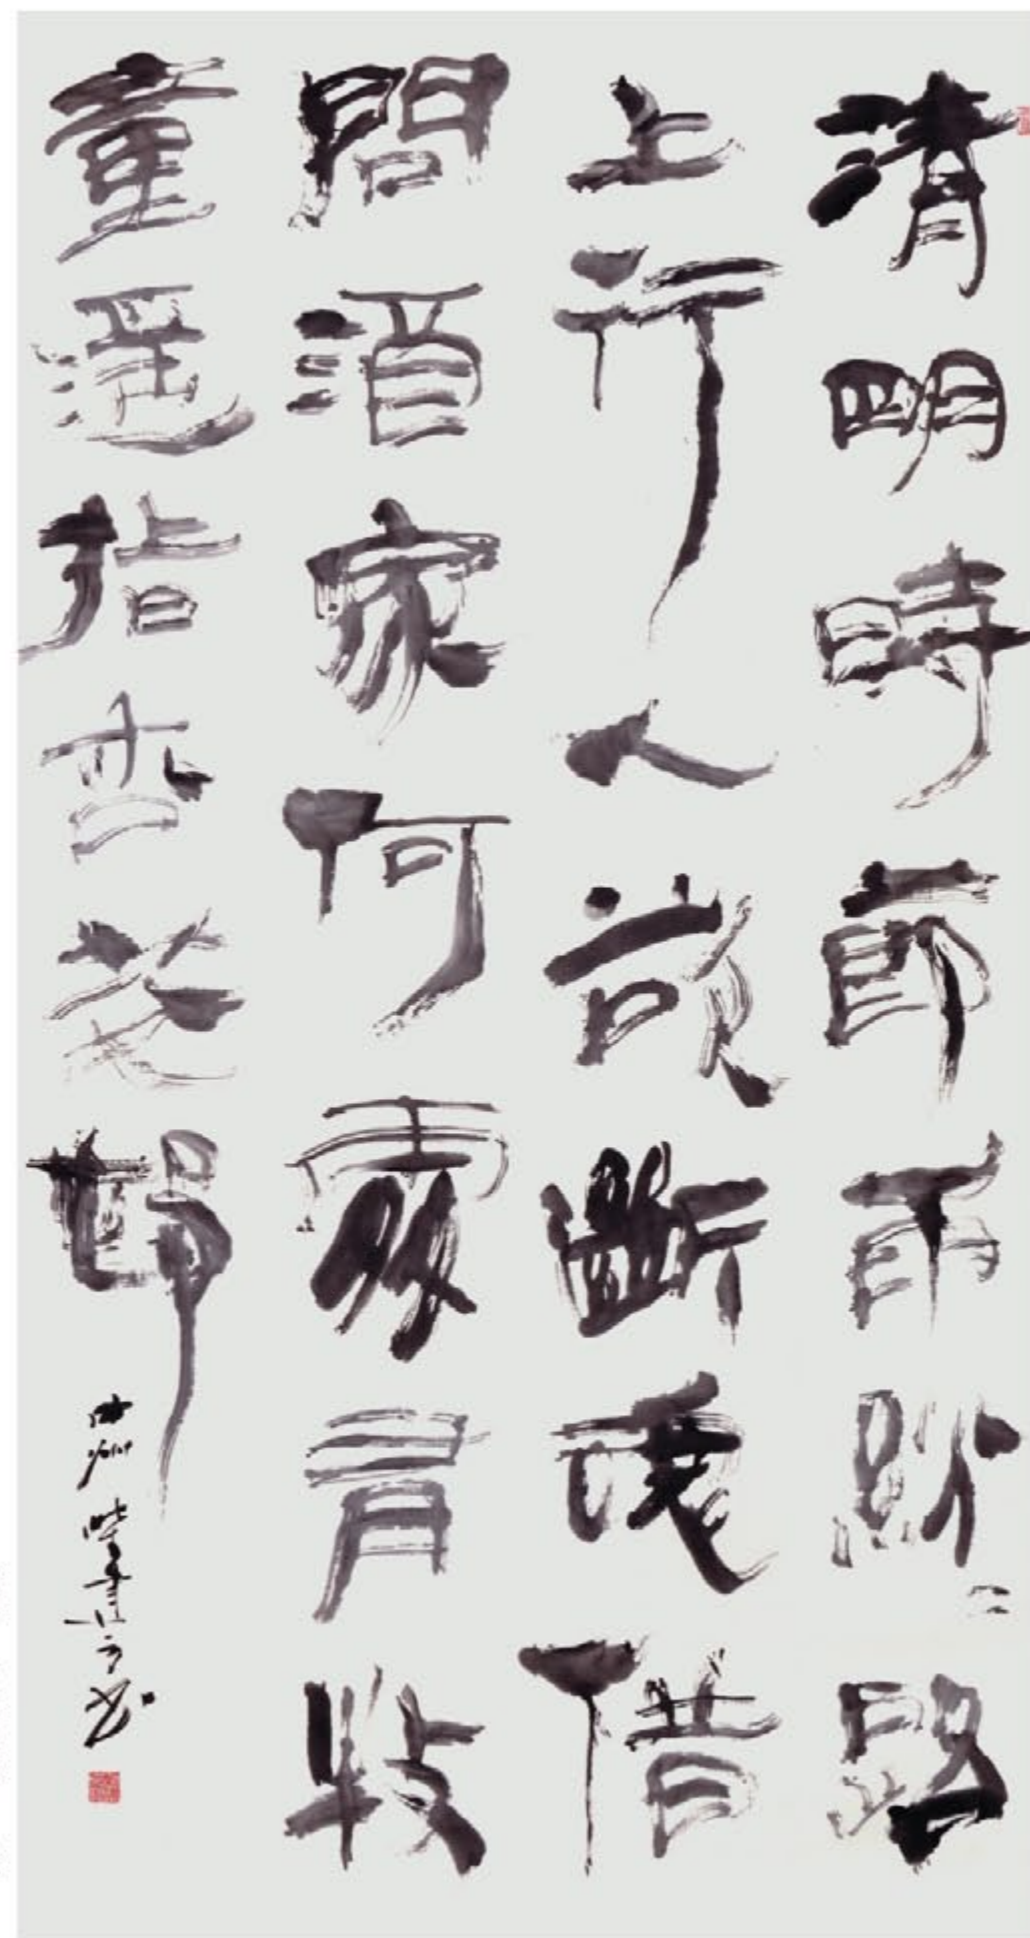 清明時節雨紛〻路
上行人欲斷魂借
問酒家何處有牧
童遥指杏花邨